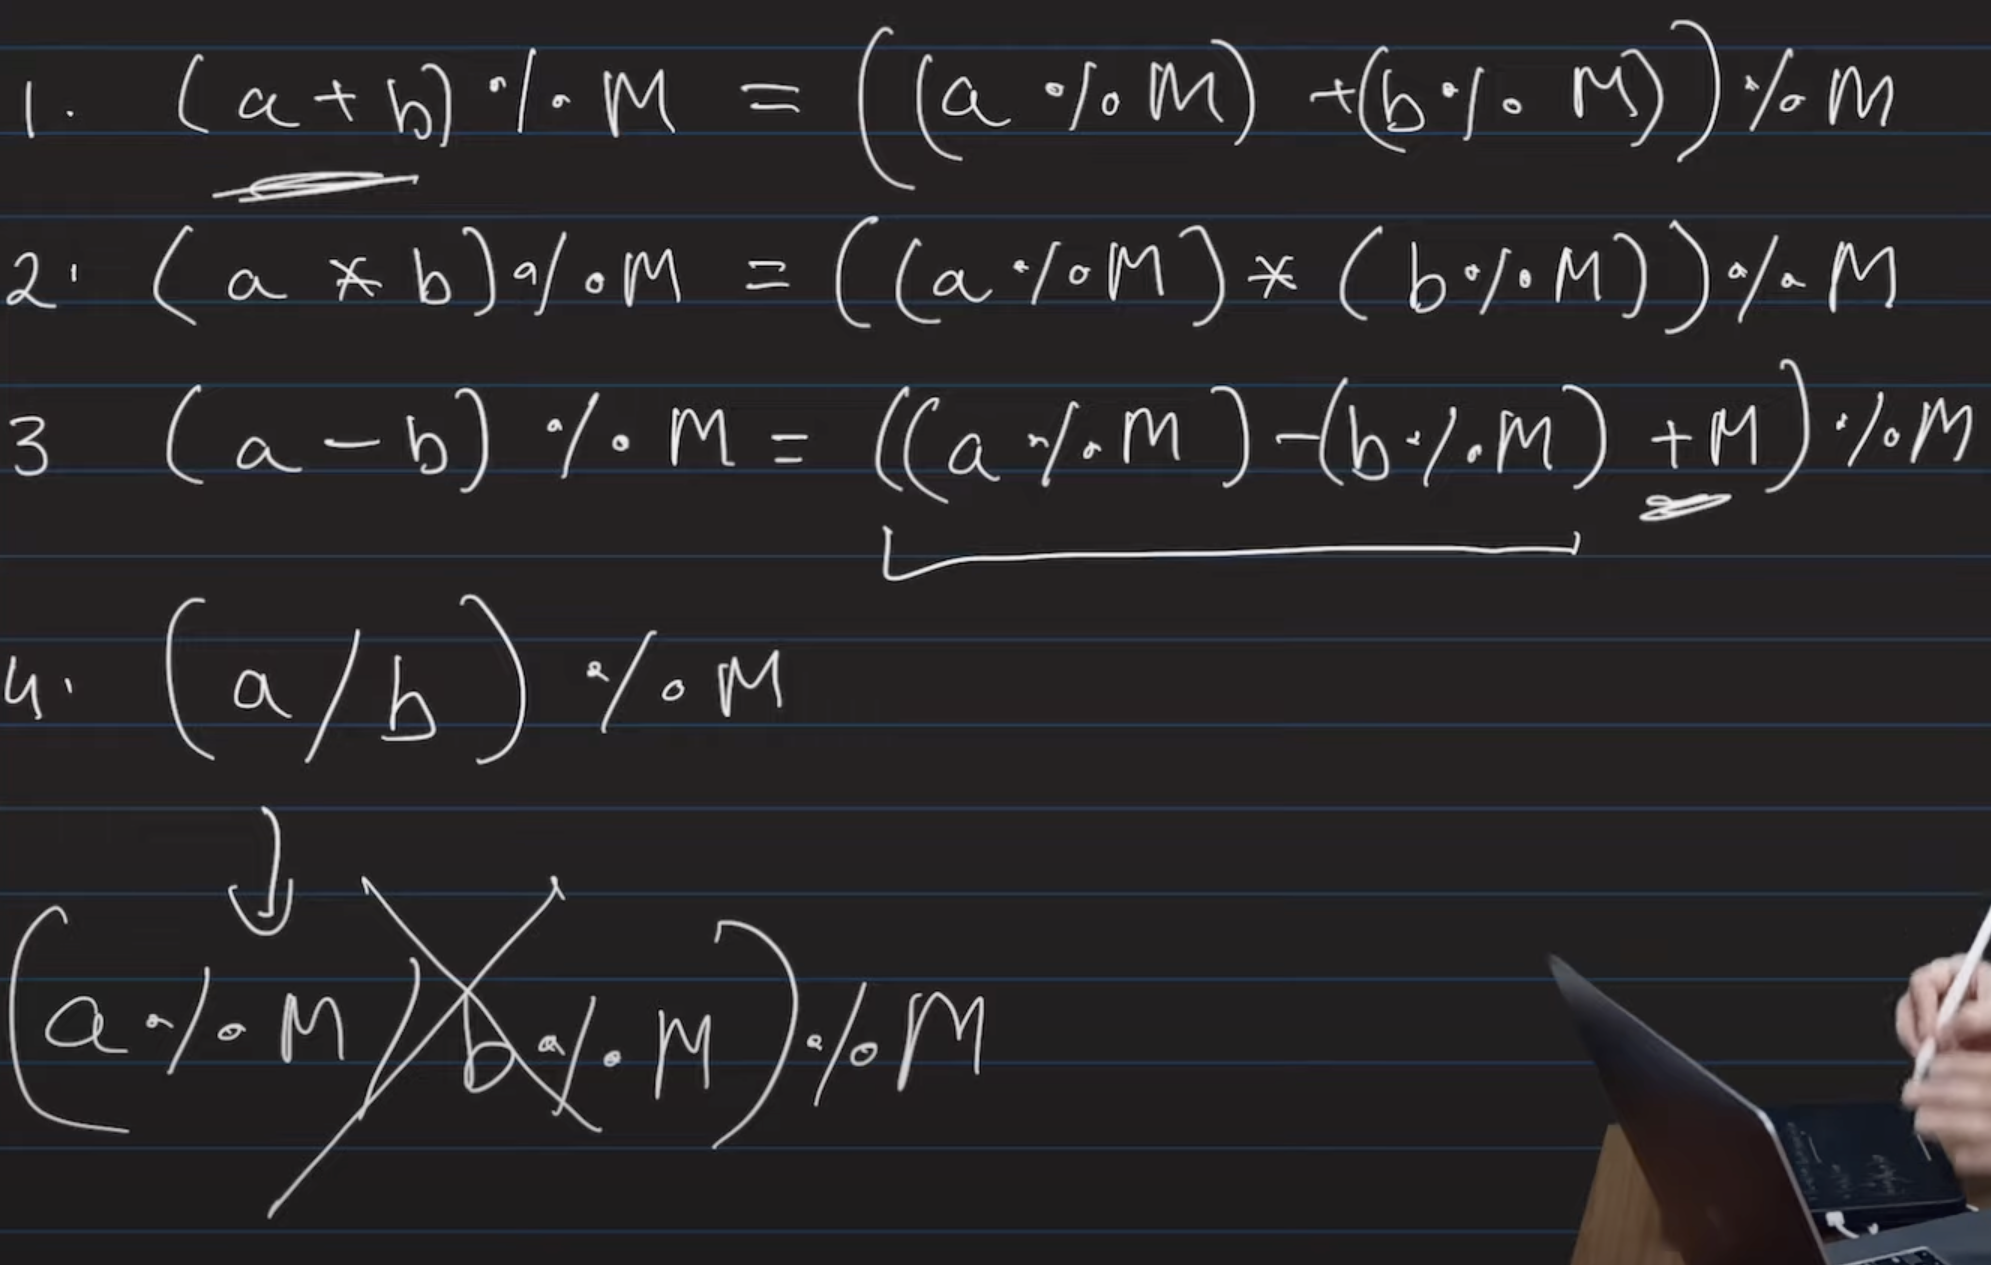 1. (a+b) % M = ((a % M) +(b % M)) % M
2. (a * b) % M = ((a % M) * (b % M)) % M
3 (a - b) % M = ((a % M) -(b % M) + M) % M
4. (a/b) % M
(a % M / b % M) % M